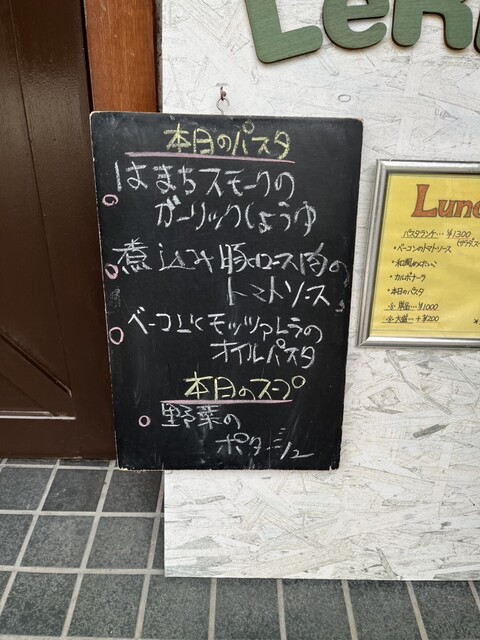 本日のパスタ
はまちスモークの
ガーリックしょうゆ
煮込み豚ロース肉の
トマトソース
ベーコンとモッツァレラの
オイルパスタ
本日のスープ
野菜の
ポタージュ
LeR
Lunc
パスタランチ… ¥1300
・ベーコンのトマトソース
・和風めんたいこ
・カルボナーラ
・本日のパスタ
☆ 単品… ¥1000
☆ 大盛… +¥200